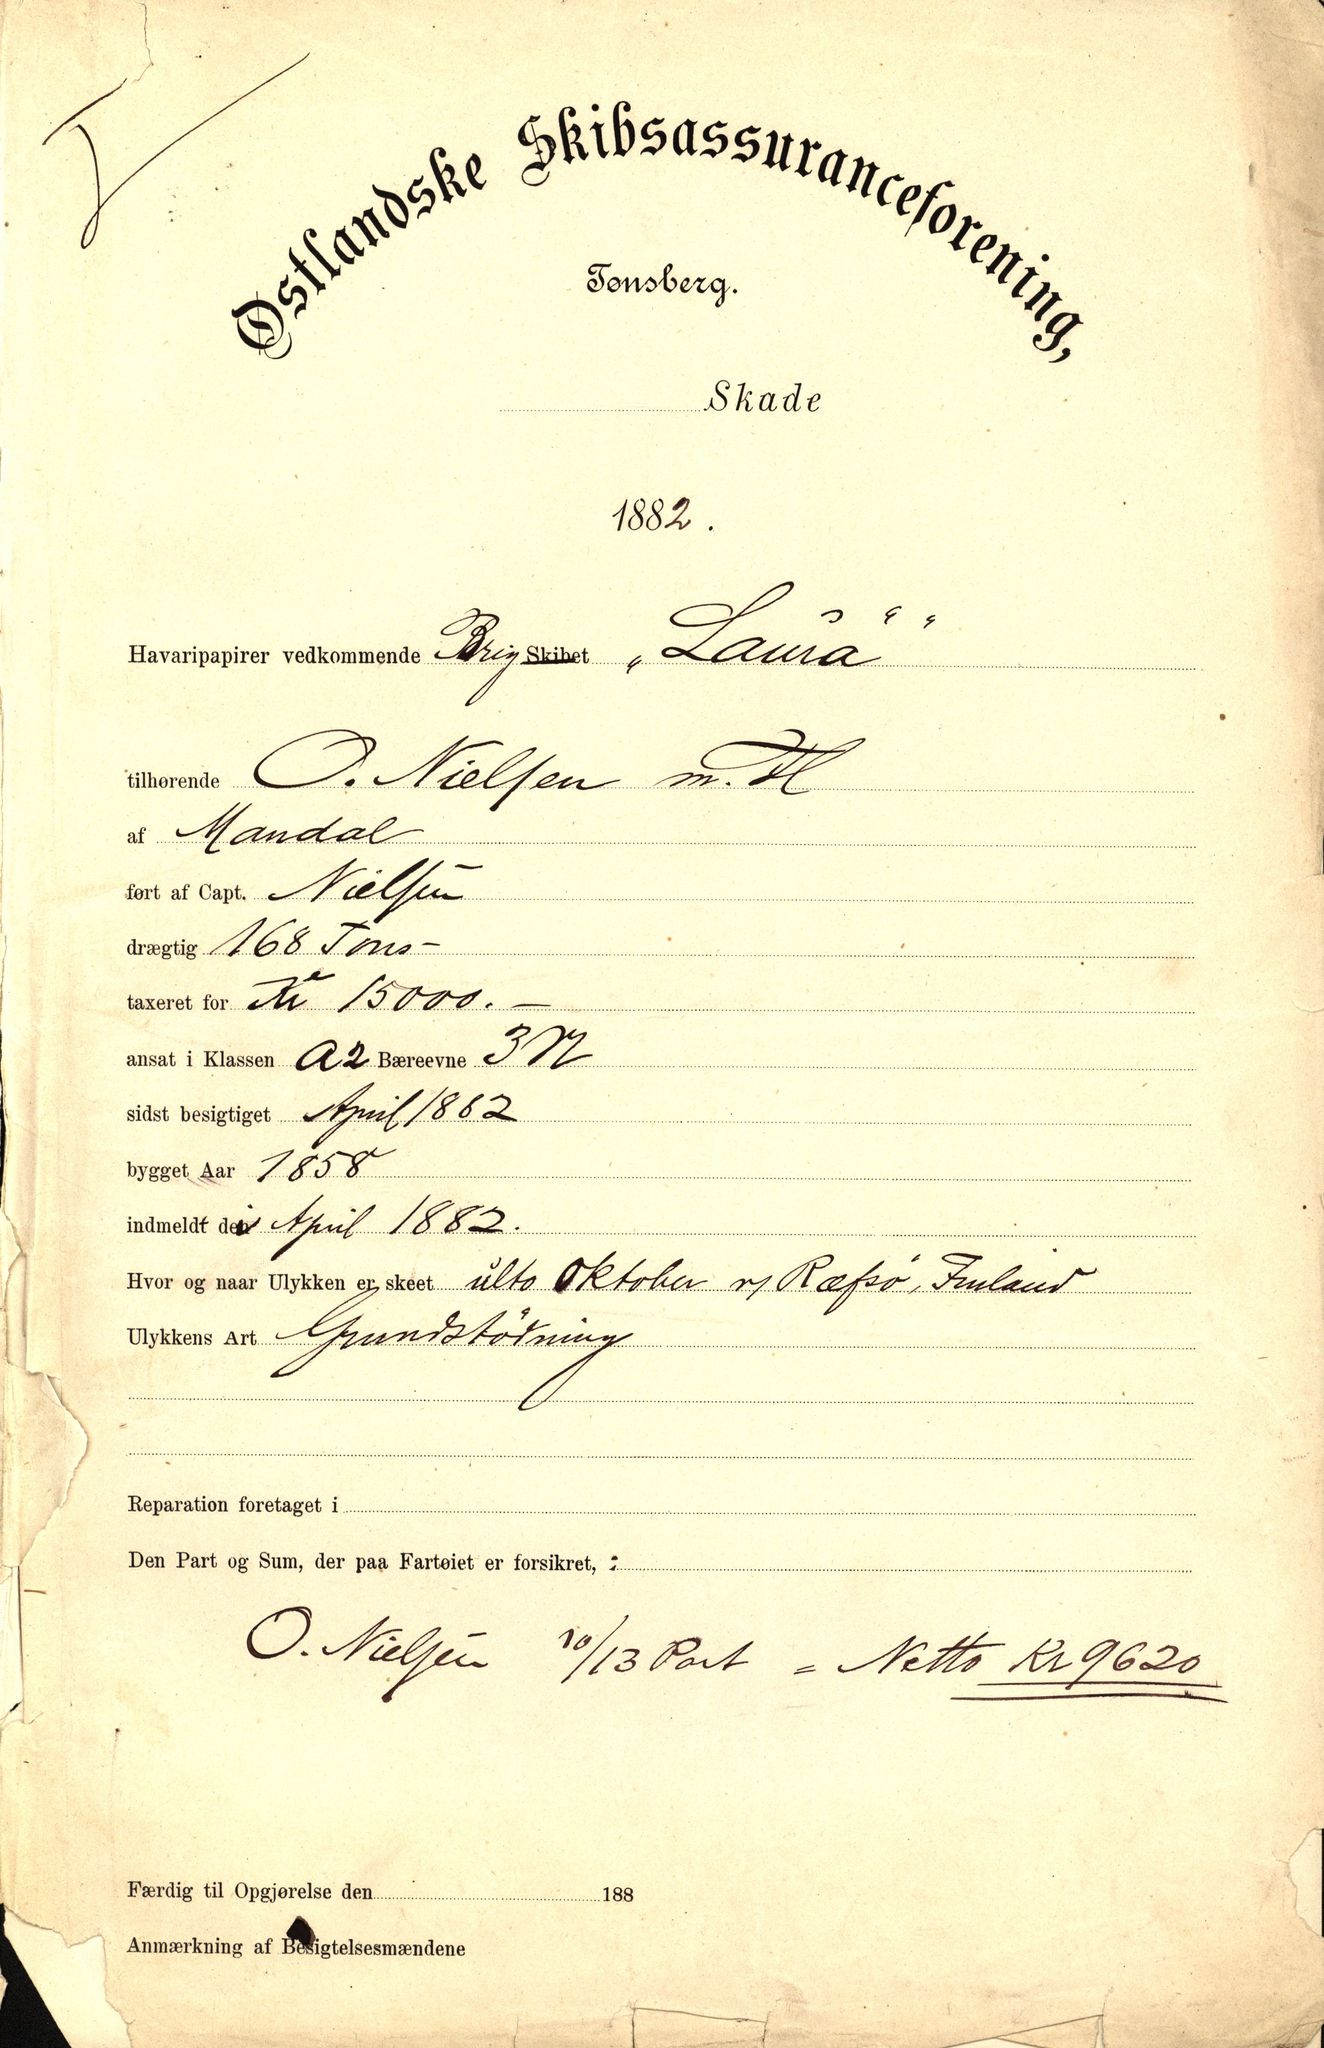 Østlandske Skibsassuranceforening,
Tønsberg.
Skade
1882.
Havaripapirer vedkommende Brig Skibet „Laura“
tilhørende O. Nielsen m. Fl
af Mandal
ført af Capt. Nielsen
drægtig 168 Tons
taxeret for Kr 15000.—
ansat i Klassen A2 Bæreevne
sidst besigtiget April 1882
bygget Aar 1858
indmeldt i April 1882.
Hvor og naar Ulykken er skeet ulto Oktober v/ Ræfsö, Finland
Ulykkens Art Grundstödning
Reparation foretaget i
Den Part og Sum, der paa Fartøiet er forsikret, :
O. Nielsen 10/13 Part = Netto Kr 9620
Færdig til Opgjørelse den 188
Anmærkning af Besigtelsesmændene